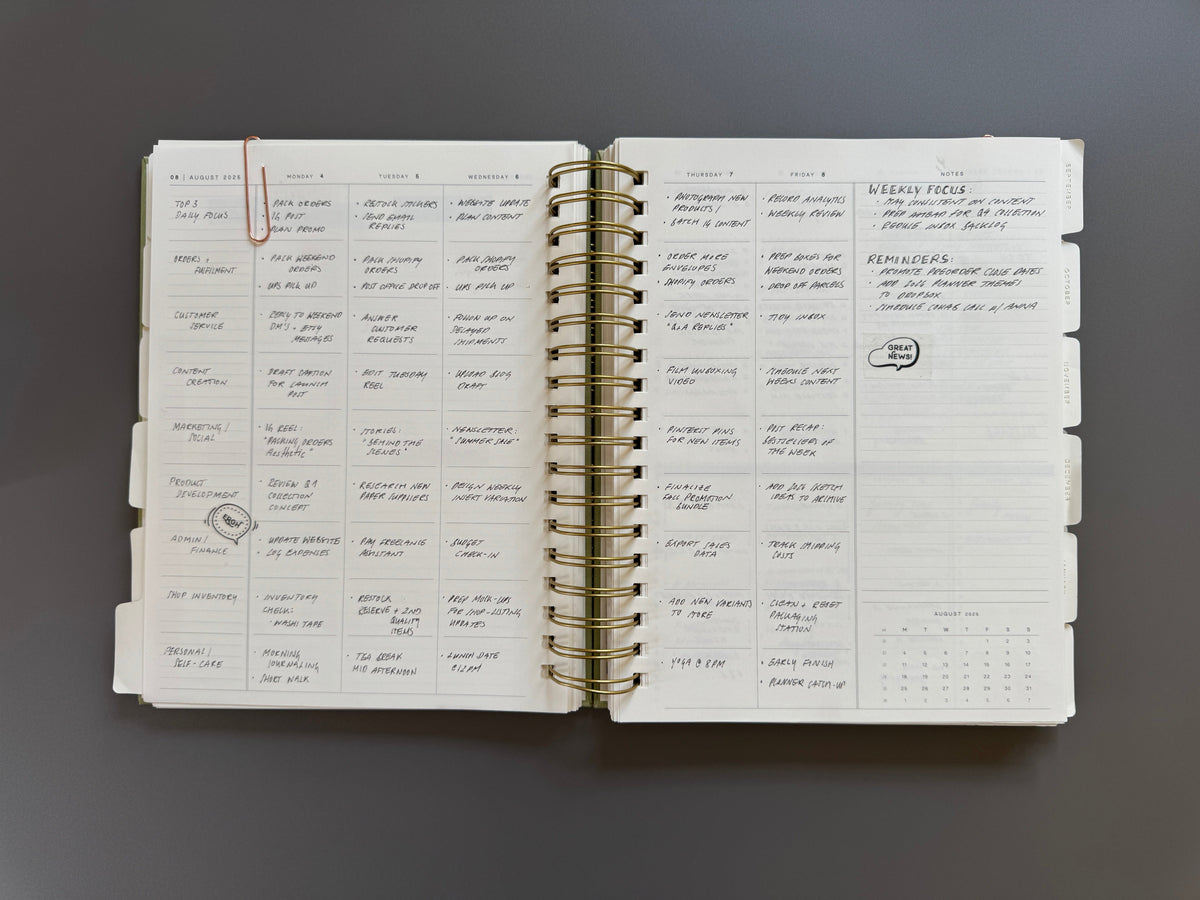 08 | AUGUST 2025
MONDAY 4
TUESDAY 5
WEDNESDAY 6
TOP 3
DAILY FOCUS
• PACK ORDERS
• IG POST
• PLAN PROMO
• RESTOCK STICKERS
• SEND EMAIL
REPLIES
• WEBSITE UPDATE
• PLAN CONTENT
ORDERS +
FULFILMENT
• PACK WEEKEND
ORDERS
• UPS PICK UP
• PACK SHOPIFY
ORDERS
• POST OFFICE DROP OFF
• PACK SHOPIFY
ORDERS
• UPS PICK UP
CUSTOMER
SERVICE
• REPLY TO WEEKEND
DM'S + ETSY
MESSAGES
• ANSWER
CUSTOMER
REQUESTS
• FOLLOW UP ON
DELAYED
SHIPMENTS
CONTENT
CREATION
• DRAFT CAPTION
FOR LAUNCH
POST
• EDIT TUESDAY
REEL
• UPLOAD BLOG
DRAFT
MARKETING /
SOCIAL
• IG REEL:
"PACKING ORDERS
Aesthetic"
• STORIES:
"BEHIND THE
SCENES"
• NEWSLETTER:
"SUMMER SALE"
PRODUCT
DEVELOPMENT
• REVIEW Q1
COLLECTION
CONCEPT
• RESEARCH NEW
PAPER SUPPLIERS
• DESIGN WEEKLY
INSERT VARIATION
ADMIN /
FINANCE
• UPDATE WEBSITE
• LOG EXPENSES
• PAY FREELANCE
ASSISTANT
• BUDGET
CHECK-IN
SHOP INVENTORY
• INVENTORY
CHECK:
• WASHI TAPE
• RESTOCK
RESERVE + 2ND
QUALITY
ITEMS
• PREP MOCK-UPS
FOR SHOP-LISTING
UPDATES
PERSONAL /
SELF-CARE
• MORNING
JOURNALING
• SHORT WALK
• TEA BREAK
MID AFTERNOON
• LUNCH DATE
@12PM
THURSDAY 7
FRIDAY 8
NOTES
• PHOTOGRAPH NEW
PRODUCTS /
• BATCH IG CONTENT
• RECORD ANALYTICS
• WEEKLY REVIEW
• ORDER MORE
ENVELOPES
• SHOPIFY ORDERS
• PREP BOXES FOR
WEEKEND ORDERS
• DROP OFF PARCELS
• SEND NEWSLETTER
"Q&A REPLIES"
• TIDY INBOX
• FILM UNBOXING
VIDEO
• SCHEDULE NEXT
WEEKS CONTENT
• PINTEREST PINS
FOR NEW ITEMS
• POST RECAP:
BESTSELLERS OF
THE WEEK
• FINALIZE
FALL PROMOTION
BUNDLE
• ADD 2026 SKETCH
IDEAS TO ARCHIVE
• EXPORT SALES
DATA
• TRACK SHIPPING
COSTS
• ADD NEW VARIANTS
TO STORE
• CLEAN + RESET
PACKAGING
STATION
• YOGA @ 8PM
• EARLY FINISH
• PLANNER CATCH-UP
WEEKLY FOCUS:
• STAY CONSISTENT ON CONTENT
• PREP AHEAD FOR Q4 COLLECTION
• REDUCE INBOX BACKLOG
REMINDERS:
• PROMOTE PREORDER CLOSE DATES
• ADD 2026 PLANNER THEMES
TO DROPBOX
• SCHEDULE COLLAB CALL W/ ANNA
GREAT
NEWS!
AUGUST 2025
M T W T F S S
1 2 3
4 5 6 7 8 9 10
11 12 13 14 15 16 17
18 19 20 21 22 23 24
25 26 27 28 29 30 31
1 2 3 4 5 6 7
SEPTEMBER
OCTOBER
NOVEMBER
DECEMBER